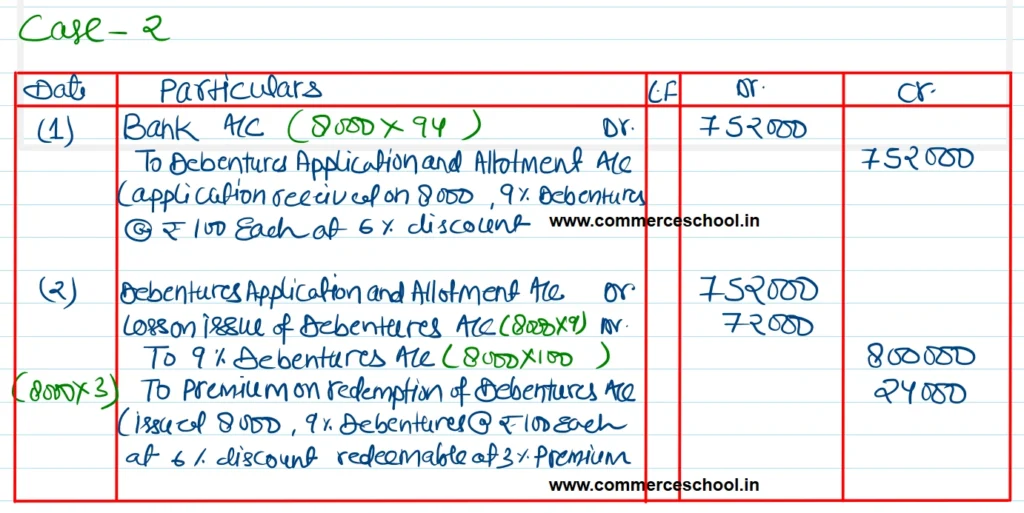 Case - 2
Date Particulars L.F Dr. Cr.
(1) Bank A/C (8000 × 94) Dr. 752000
To Debentures Application and Allotment A/c 752000
(application received on 8000, 9% Debentures
@ ₹100 Each at 6% discount www.commerceschool.in
(2) Debentures Application and Allotment A/c Dr 752000
Loss on issue of Debentures A/c (8000×9) Dr. 72000
To 9% Debentures A/c (8000×100) 800000
(8000×3) To Premium on redemption of Debentures A/c 24000
(issued 8000, 9% Debentures @ ₹100 Each
at 6% discount redeemable at 3% Premium
www.commerceschool.in